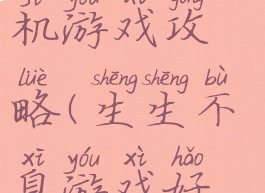 jī yóu xì gōng
机游戏攻
lüè shēng shēng bù
略(生生不
xī yóu xì hǎo
息游戏好